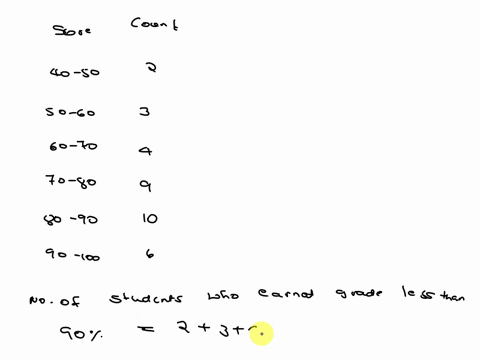 Score Count
40-50 2
50-60 3
60-70 4
70-80 9
80-90 10
90-100 6
No. of students who earned grade less than
90% = 2 + 3 +